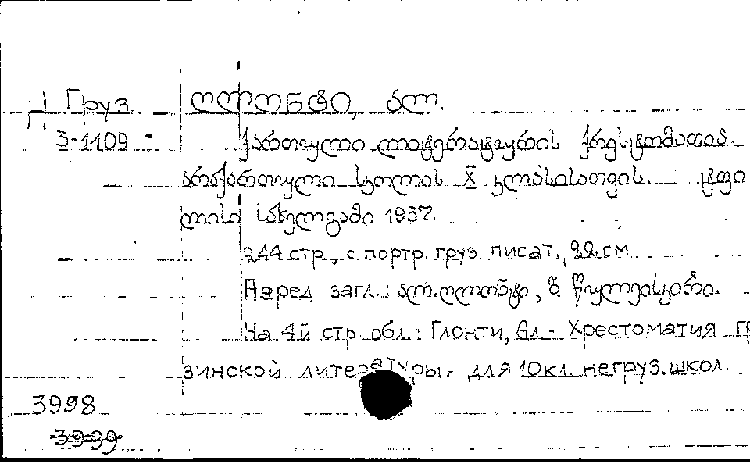 Груз. ღლონტი, ალ.
3-1109 ქართული ლიტერატურის ქრესტომათია
არაქართული სკოლის X კლასისათვის. ტფი
ლისი სახელგამი 1937.
244 стр., с портр. груз. писат., 22 см.
Перед загл.: ალ. ღლონტი, ნ.
На 4й стр. обл.: Глонти, Ал. - Хрестоматия гр
зинской литературы. для 10 кл. негруз. школ.
3998
3939